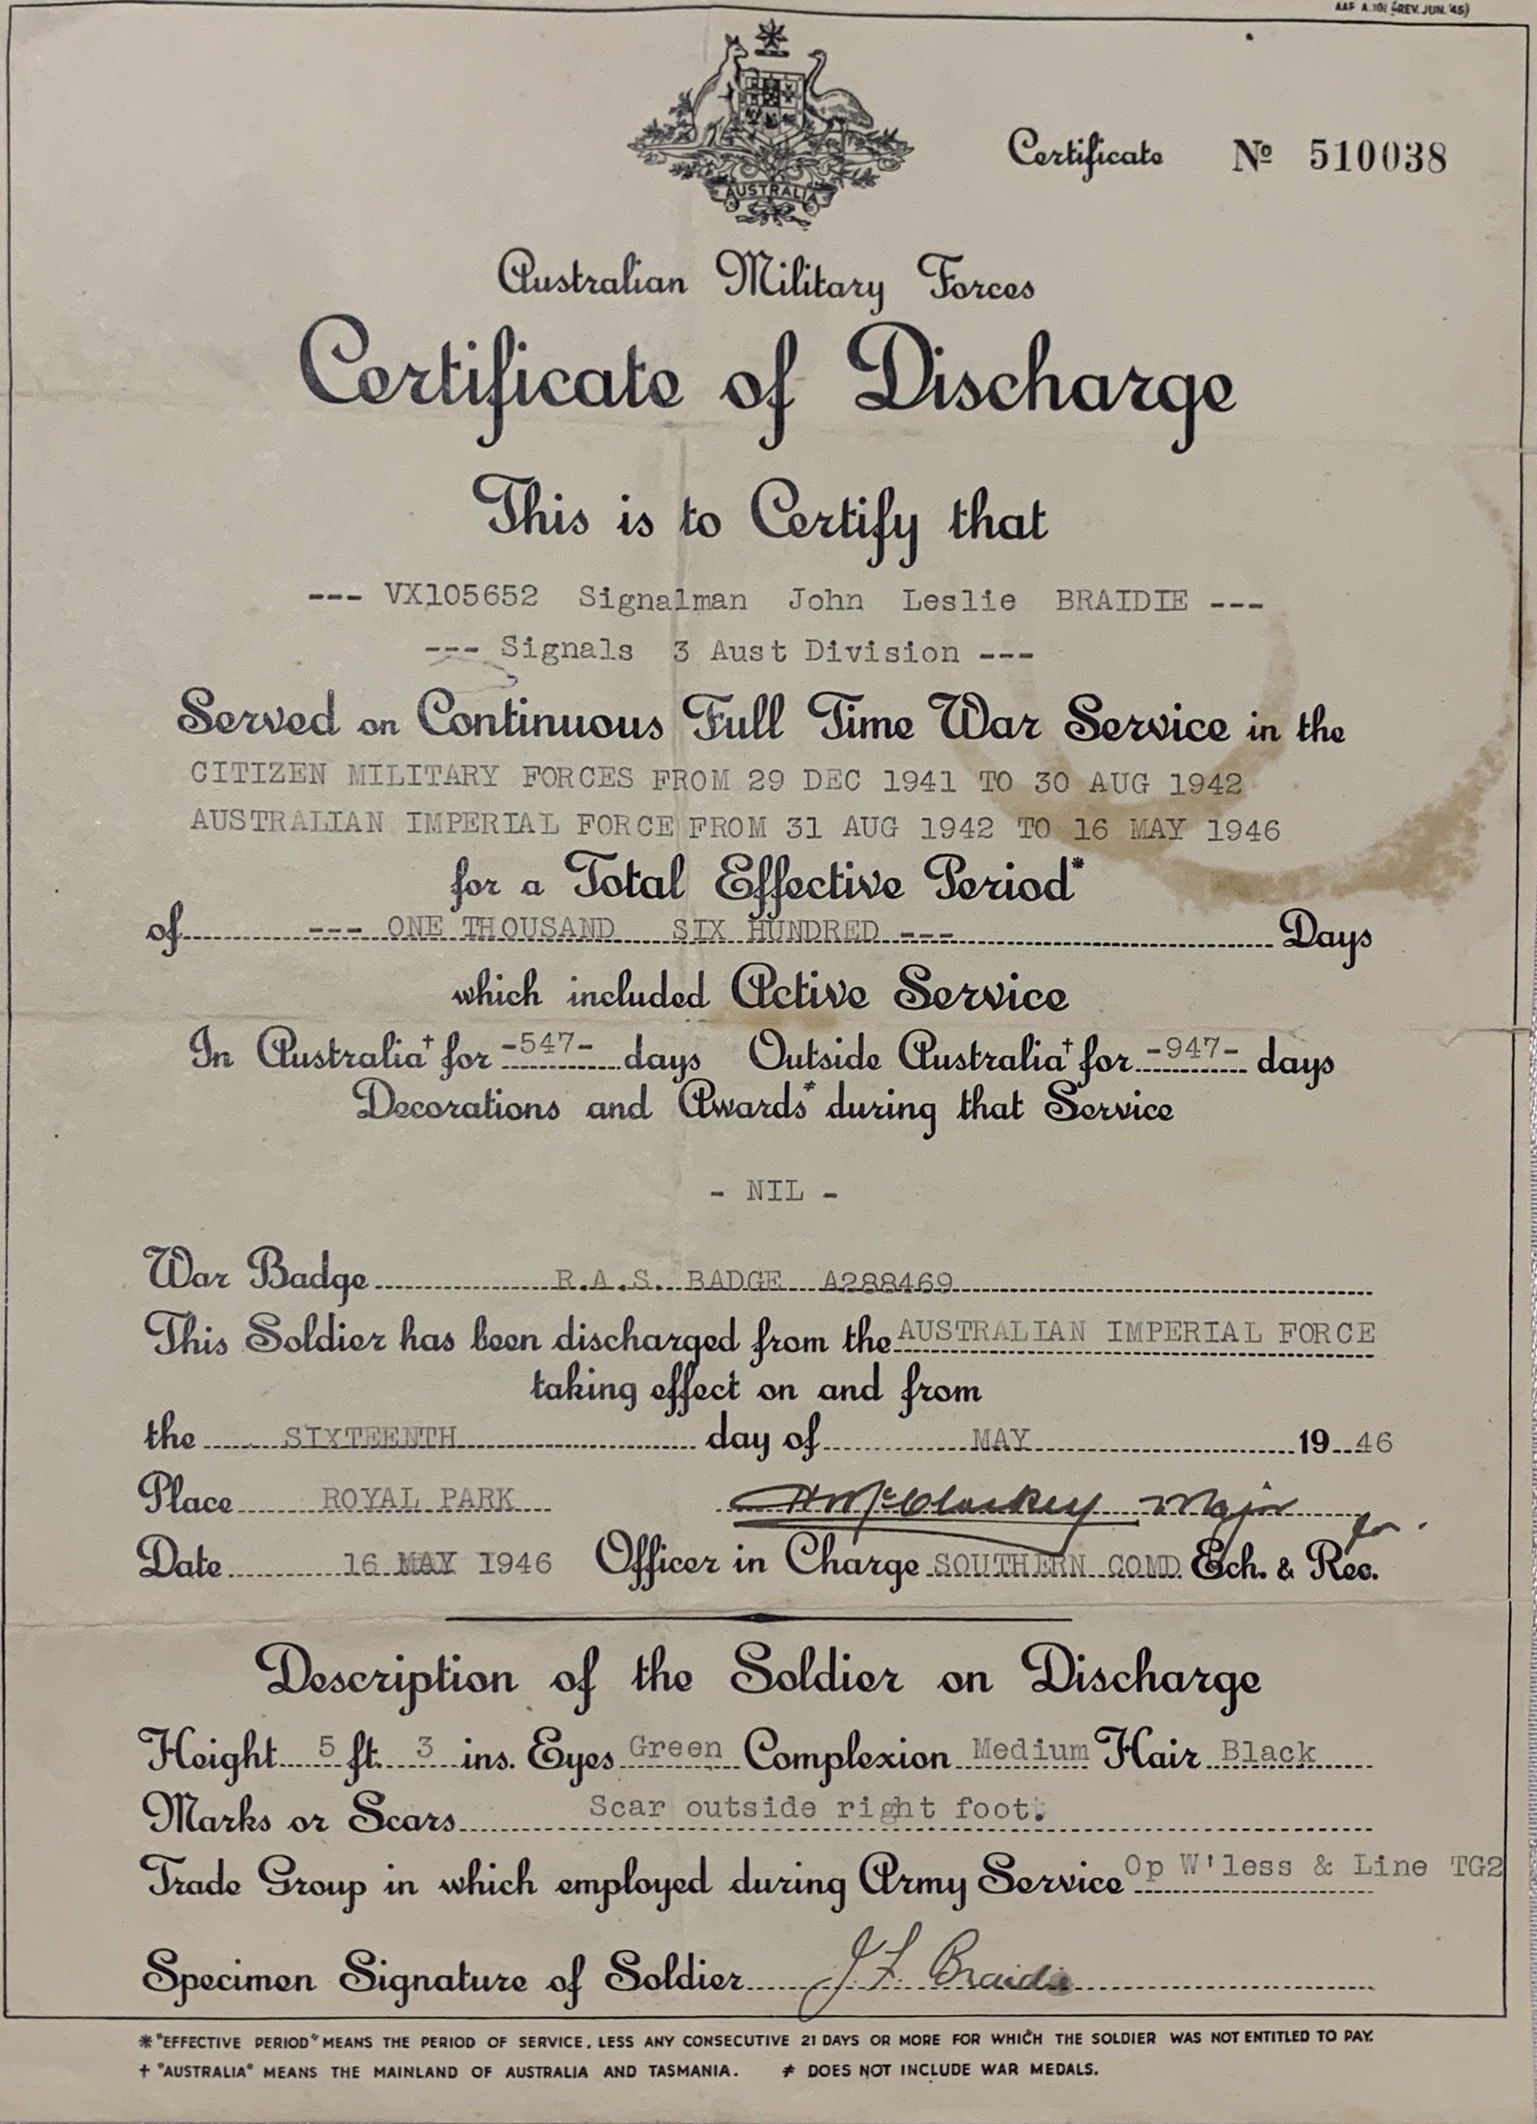 AAF A.101 (REV. JUN. '45)
AUSTRALIA
Certificate № 510038
Australian Military Forces
Certificate of Discharge
This is to Certify that
--- VX105652 Signalman John Leslie BRAIDIE ---
--- Signals 3 Aust Division ---
Served on Continuous Full Time War Service in the
CITIZEN MILITARY FORCES FROM 29 DEC 1941 TO 30 AUG 1942
AUSTRALIAN IMPERIAL FORCE FROM 31 AUG 1942 TO 16 MAY 1946
for a Total Effective Period*
of --- ONE THOUSAND SIX HUNDRED --- Days
which included Active Service
In Australia† for -547- days Outside Australia† for -947- days
Decorations and Awards≠ during that Service
- NIL -
War Badge R.A.S. BADGE A288469
This Soldier has been discharged from the AUSTRALIAN IMPERIAL FORCE
taking effect on and from
the SIXTEENTH day of MAY 1946
Place ROYAL PARK Major for
Date 16 MAY 1946 Officer in Charge SOUTHERN COMD Ech. & Rec.
Description of the Soldier on Discharge
Height 5 ft. 3 ins. Eyes Green Complexion Medium Hair Black
Marks or Scars Scar outside right foot.
Trade Group in which employed during Army Service Op W'less & Line TG2
Specimen Signature of Soldier J L Braidie
* "EFFECTIVE PERIOD" MEANS THE PERIOD OF SERVICE, LESS ANY CONSECUTIVE 21 DAYS OR MORE FOR WHICH THE SOLDIER WAS NOT ENTITLED TO PAY.
† "AUSTRALIA" MEANS THE MAINLAND OF AUSTRALIA AND TASMANIA. ≠ DOES NOT INCLUDE WAR MEDALS.